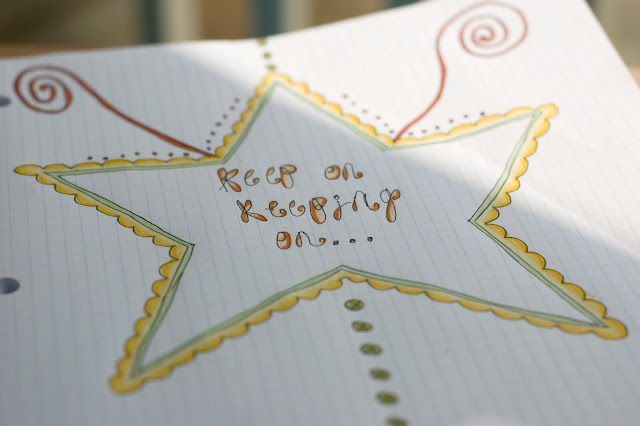 Keep on
keeping
on...